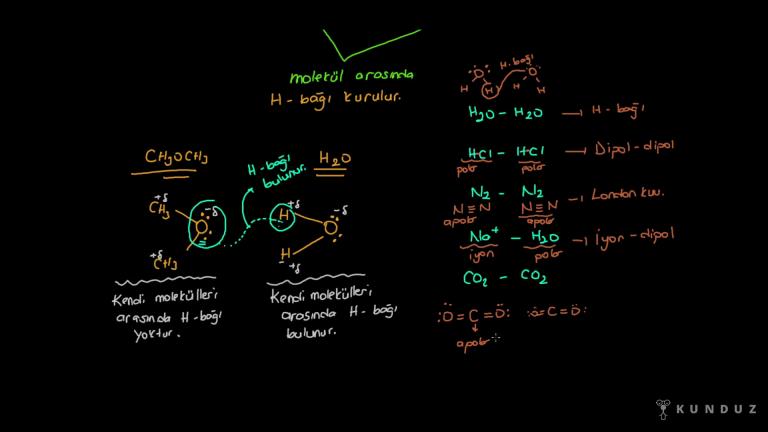 molekül arasında
H-bağı kurulur.
CH3OCH3
H-bağı
bulunur.
H2O
+δ
CH3
-δ
O
+δ
CH3
+δ
H
-δ
O
H
+δ
Kendi molekülleri
arasında H-bağı
yoktur.
Kendi molekülleri
arasında H-bağı
bulunur.
H-bağı
O O
H H H H
H2O - H2O → H-bağı
HCl - HCl → Dipol-dipol
polar polar
N2 - N2 → London kuv.
N≡N N≡N
apolar apolar
Na+ - H2O → İyon-dipol
iyon polar
CO2 - CO2
:Ö=C=Ö: :Ö=C=Ö:
apolar
KUNDUZ